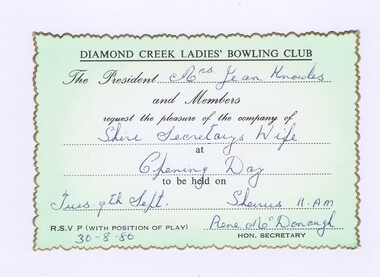 DIAMOND CREEK LADIES' BOWLING CLUB
The President Mrs Jean Knowles
and Members
request the pleasure of the company of
Shire Secretarys Wife
at
Opening Day
to be held on
Tues. 9th Sept. Sherries 11. A.M
R.S.V P (WITH POSITION OF PLAY) Rene McDonough
30-8-80 HON. SECRETARY